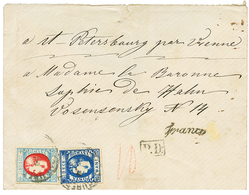 a st-Petersbourg par Vienne
a Madame la Baronne
Sophie de Hahn
Vosensensky N 14
franco
P.D.